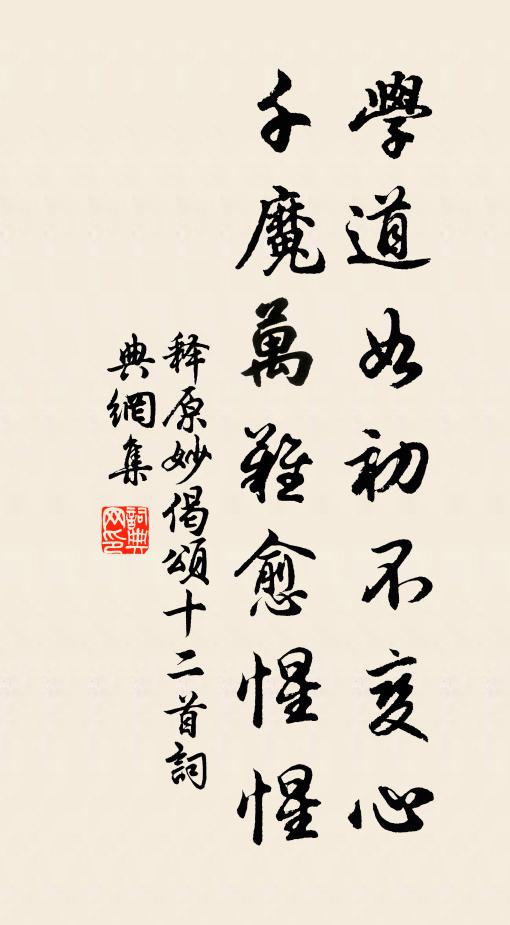 學道如初不变心
千魔萬難愈惺惺
释原妙偈頌十二首詞
典網集
詞典網印